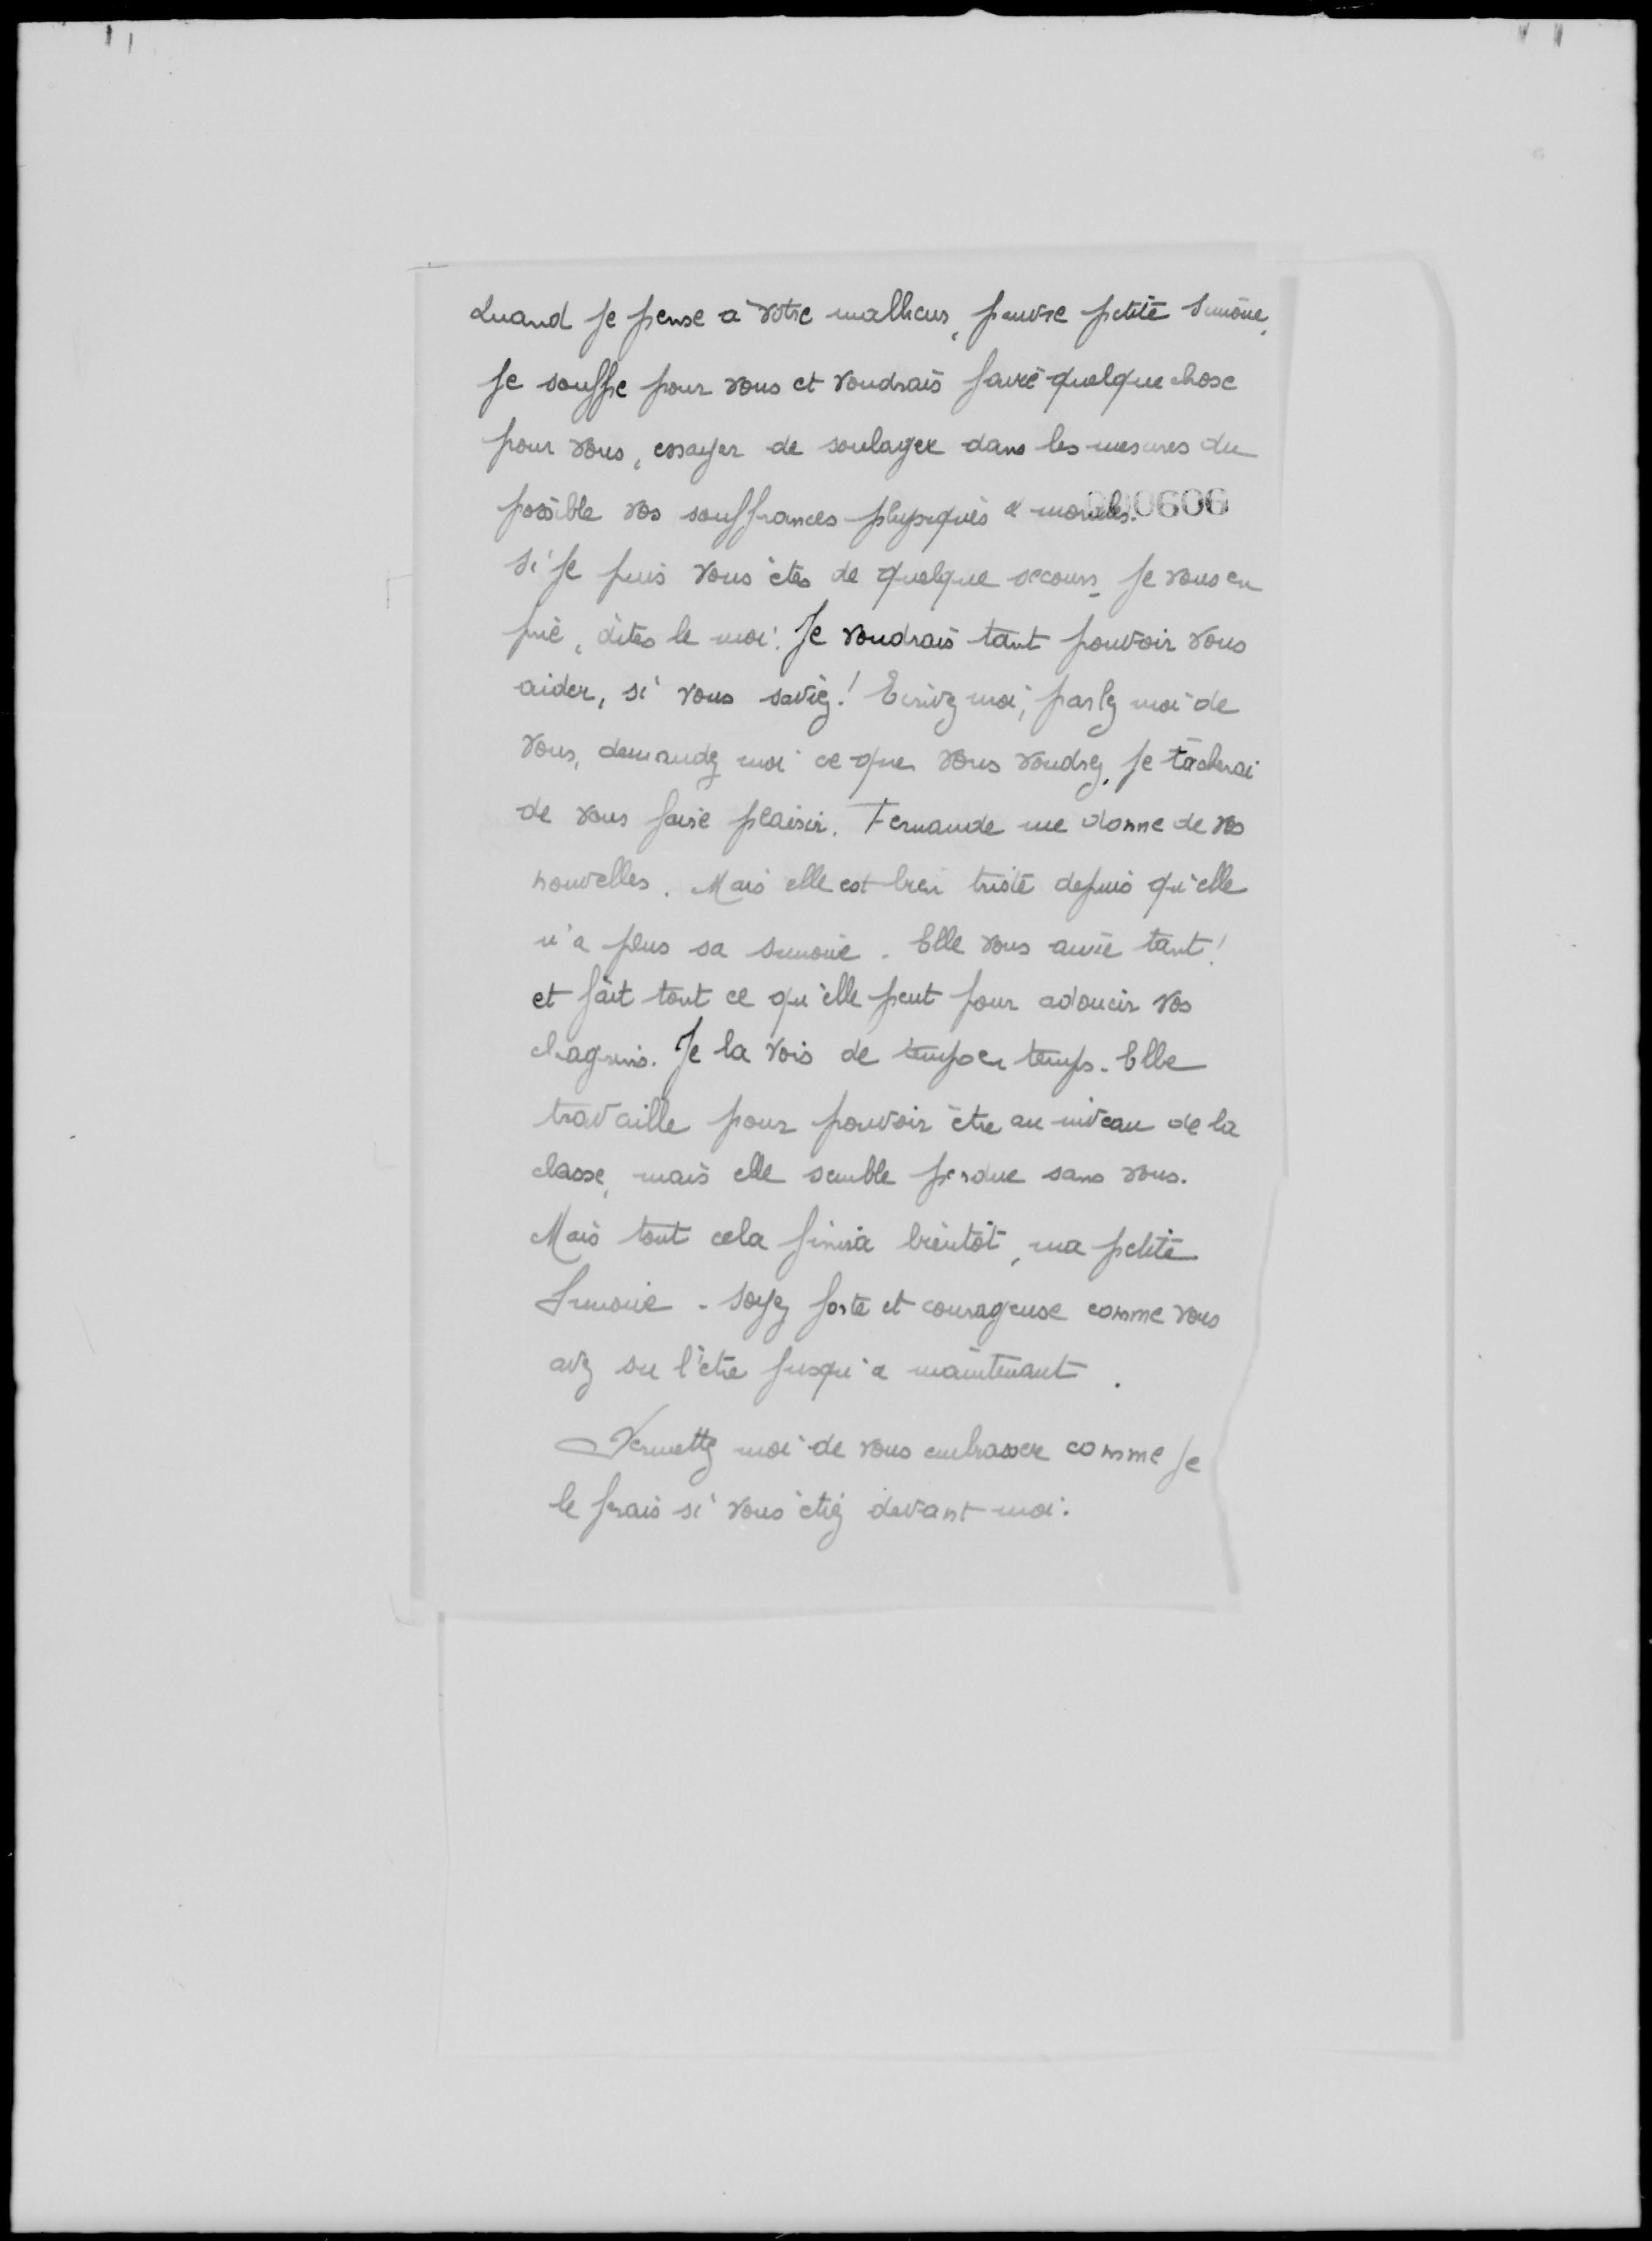 Quand je pense à votre malheur, pauvre petite Simone,
je souffre pour vous et voudrais faire quelque chose
pour vous, essayer de soulager dans les mesures du
possible vos souffrances physiques et morales.
000606
Si je puis vous être de quelque secours, je vous en
prie, dites le moi. Je voudrais tant pouvoir vous
aider, si vous saviez! Ecrivez moi, parlez moi de
vous, demandez moi ce que vous voudrez, je tâcherai
de vous faire plaisir. Fernande me donne de vos
nouvelles. Mais elle est bien triste depuis qu'elle
n'a plus sa Simone. Elle vous aime tant!
et fait tout ce qu'elle peut pour adoucir vos
chagrins. Je la vois de temps en temps. Elle
travaille pour pouvoir être au niveau de la
classe, mais elle semble perdue sans vous.
Mais tout cela finira bientôt, ma petite
Simone. Soyez forte et courageuse comme vous
avez su l'être jusqu'à maintenant.
Permettez moi de vous embrasser comme je
le ferais si vous étiez devant moi.